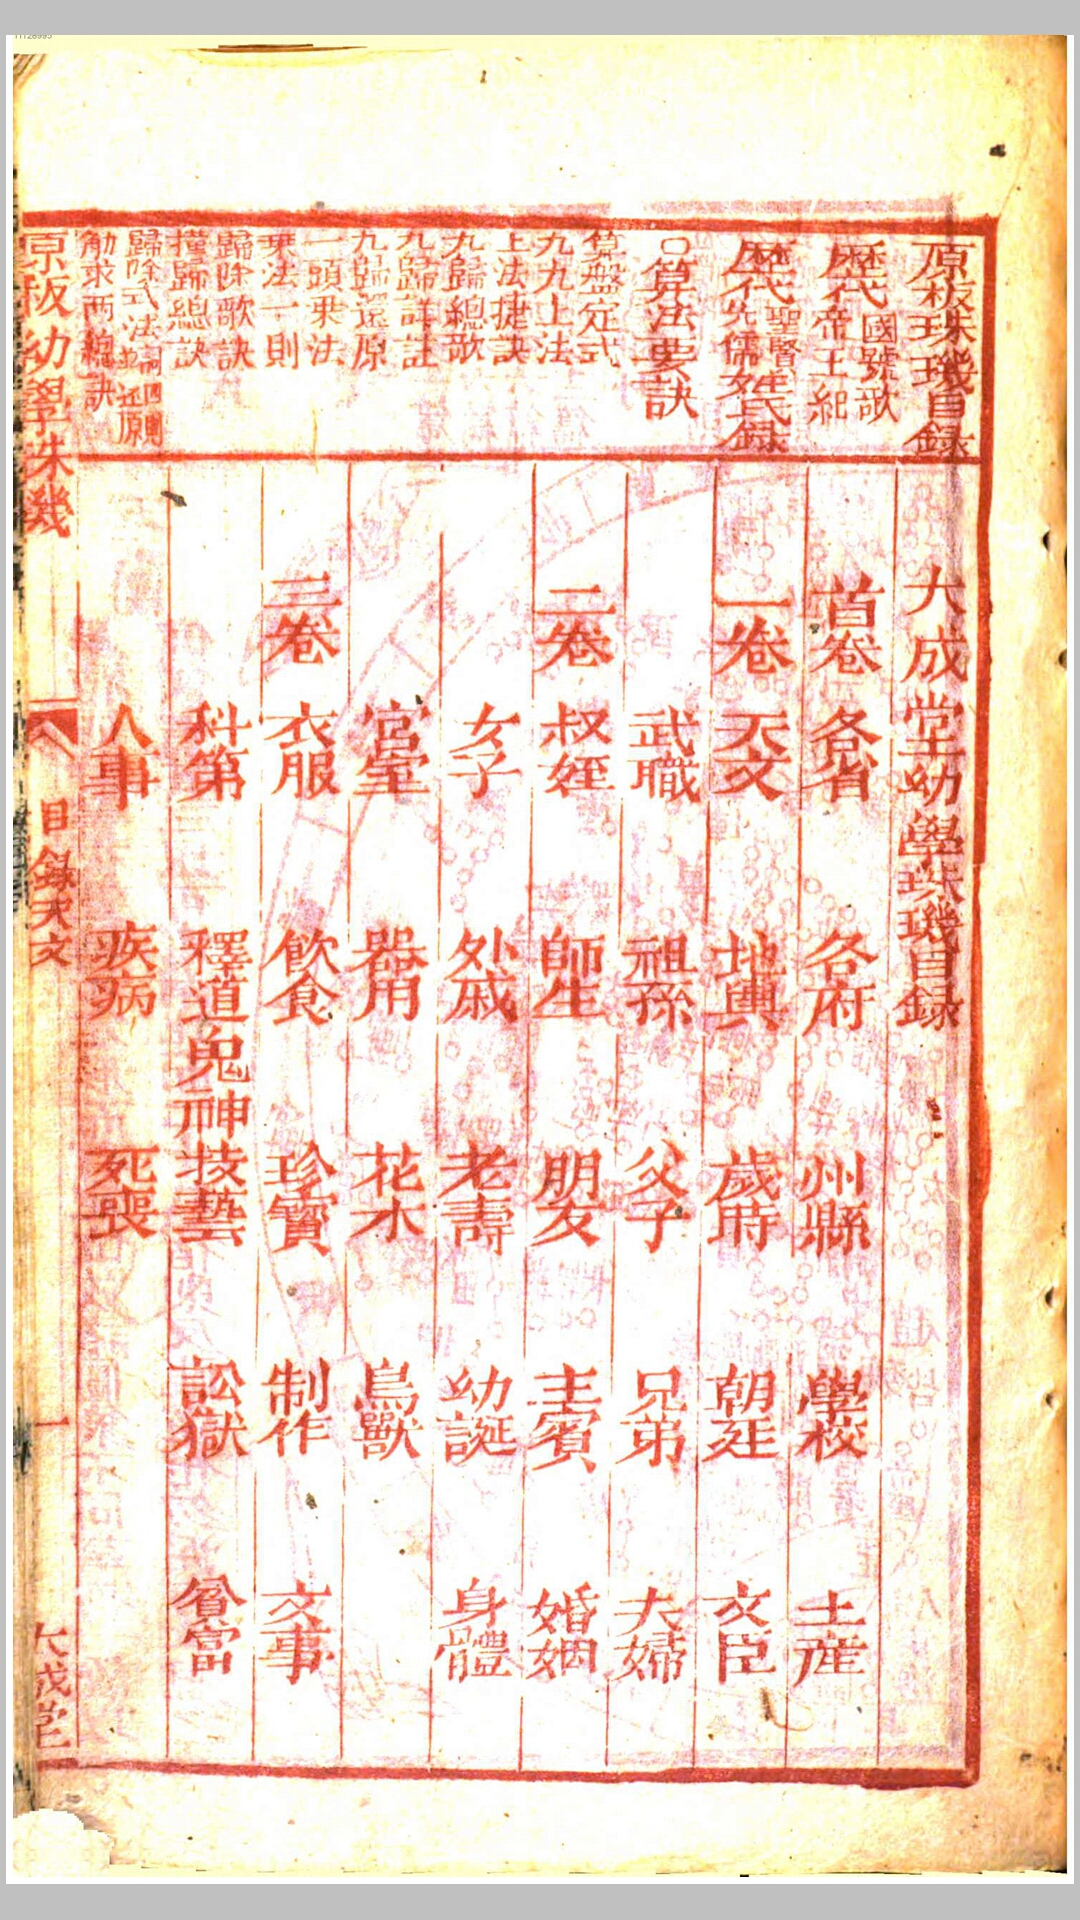 11128995
原板珠璣目錄
國號歌
歷代帝王紀
聖賢
歷代先儒姓氏錄
○算法要訣
算盤定式
九九上法
上法捷訣
九歸總歌
九歸詳註
九歸還原
一頭乘法
乘法一則
歸除歌訣
撞歸總訣
歸除式法
觔求兩總訣
大成堂幼學珠璣目錄
首卷 各省 各府 州縣 學校 土產
一卷 天文 地輿 歲時 朝廷 文臣
武職 祖孫 父子 兄弟 夫婦
二卷 叔姪 師生 朋友 主賓 婚姻
女子 外戚 老壽 幼誕 身體
宮室 器用 花木 鳥獸
三卷 衣服 飲食 珍寶 制作 文事
科第 釋道鬼神 技藝 訟獄 貧富
人事 疾病 死喪
原板幼學珠璣 目錄天文 一 大成堂